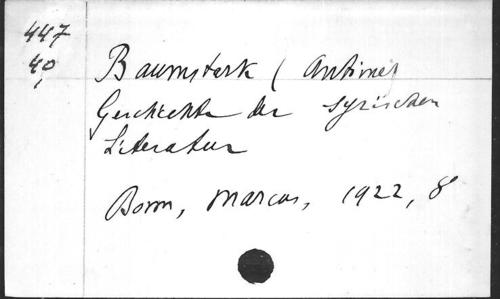 447
40,
Baumstark (Antime)
Geschichte der syrischen
Literatur
Bonn, Marcus, 1922, 8°